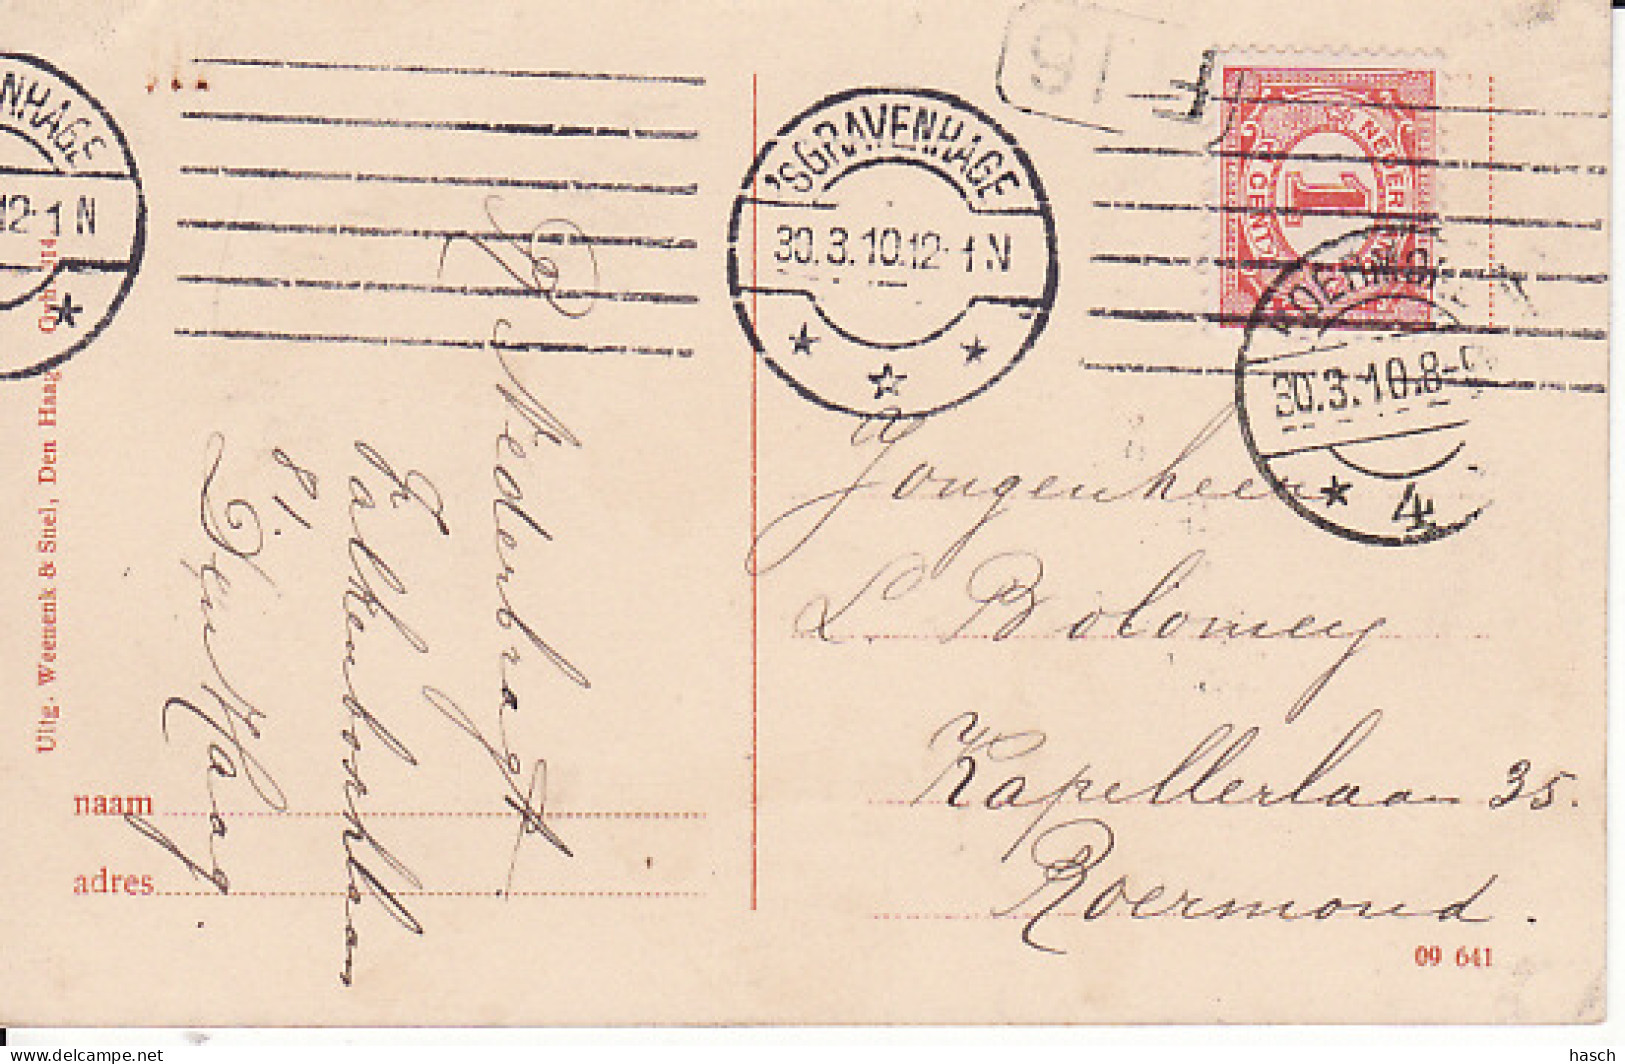 NHAGE
12-1 N
'sGRAVENHAGE
30.3.10.12-1 N
NEDER
1
CENT
30.3.10.8-9
4
Uitg. Weenenk & Snel, Den Haag
Nederbragt
Valkenboschlaan
81
Den Haag
naam
adres
Jongenheer
L. Bolomey
Kapellerlaan 35.
Roermond.
09 641
hasch
delcampe.net